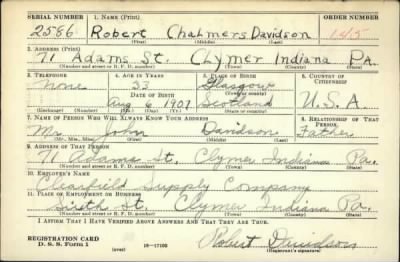 SERIAL NUMBER 1. NAME (Print) ORDER NUMBER
2586 Robert Chalmers Davidson 1415
(First) (Middle) (Last)
2. ADDRESS (Print)
71 Adams St. Clymer Indiana Pa.
(Number and street or R. F. D. number) (Town) (County) (State)
3. TELEPHONE 4. AGE IN YEARS 5. PLACE OF BIRTH 6. COUNTRY OF CITIZENSHIP
None 33 Glasgow
DATE OF BIRTH (Town or county)
Aug 6 1907 Scotland U.S.A.
(Exchange) (Number) (Mo.) (Day) (Yr.) (State or country)
7. NAME OF PERSON WHO WILL ALWAYS KNOW YOUR ADDRESS 8. RELATIONSHIP OF THAT PERSON
Mr. John Davidson Father
(Mr., Mrs., Miss) (First) (Middle) (Last)
9. ADDRESS OF THAT PERSON
71 Adams St. Clymer Indiana Pa.
(Number and street or R. F. D. number) (Town) (County) (State)
10. EMPLOYER'S NAME
Clearfield Supply Company
11. PLACE OF EMPLOYMENT OR BUSINESS
Sixth St. Clymer Indiana Pa.
(Number and street or R. F. D. number) (Town) (County) (State)
I AFFIRM THAT I HAVE VERIFIED ABOVE ANSWERS AND THAT THEY ARE TRUE.
REGISTRATION CARD
D. S. S. Form 1 (over) 16—17105 Robert Davidson
(Registrant's signature)